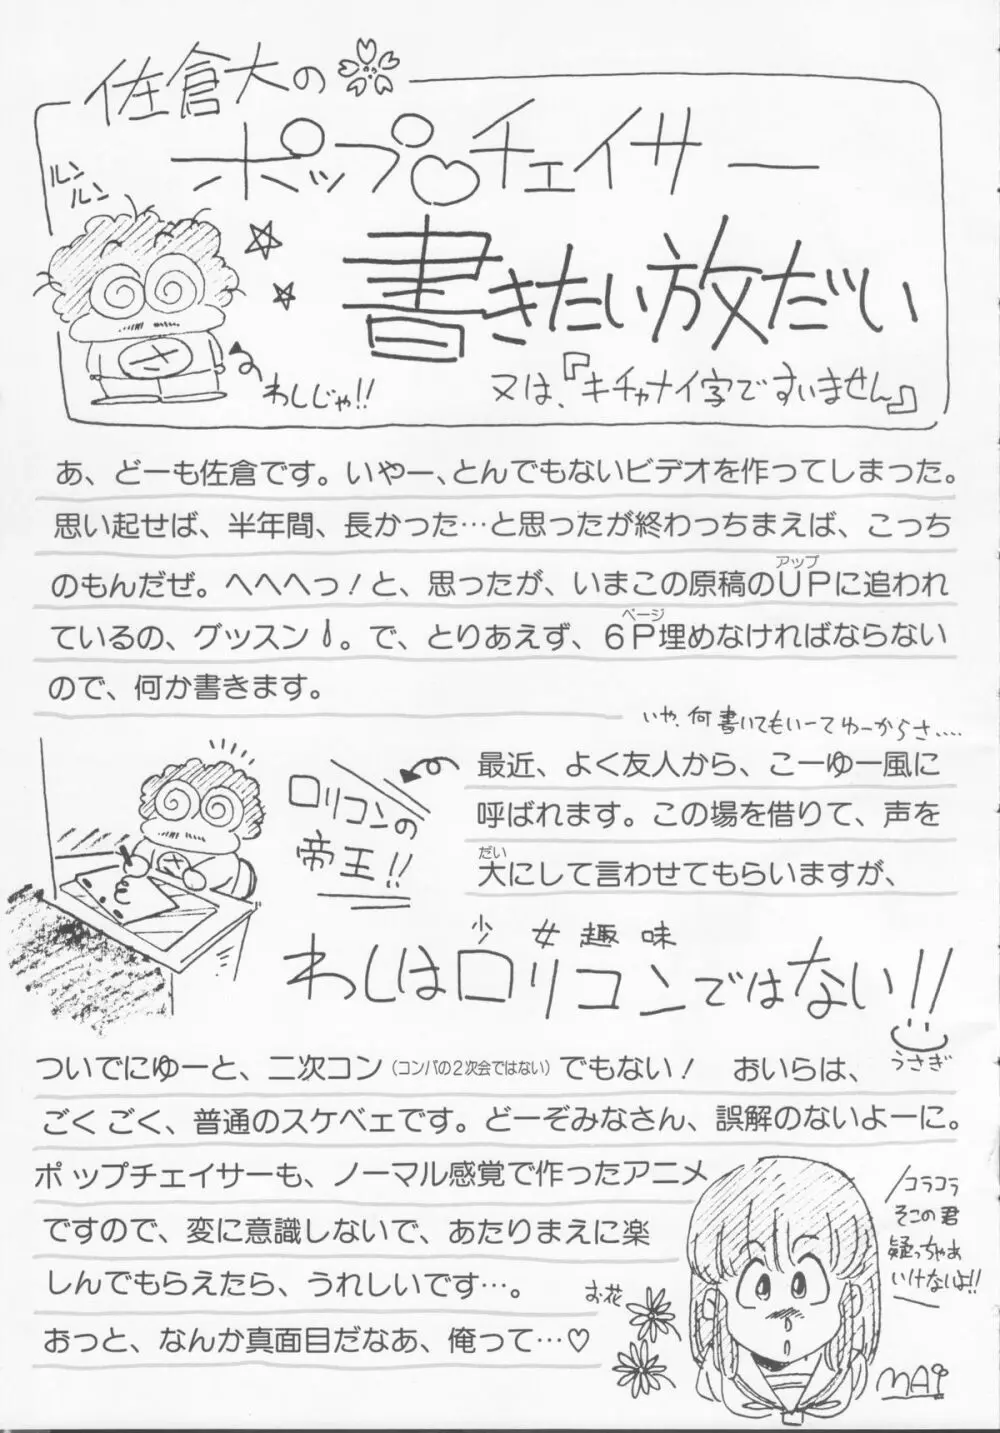 佐倉大の
ポップ♡チェイサー
書きたい放だい
又は、『キチャナイ字ですいません』
ルンルン
わしじゃ!!
あ、どーも佐倉です。いやー、とんでもないビデオを作ってしまった。
思い起せば、半年間、長かった…と思ったが終わっちまえば、こっち
のもんだぜ。へへへっ!と、思ったが、いまこの原稿のUPに追われ
アップ
ているの、グッスン。で、とりあえず、6P埋めなければならない
ページ
ので、何か書きます。
いや、何書いてもいーてゆーからさ....
ロリコンの
帝王!!
最近、よく友人から、こーゆー風に
呼ばれます。この場を借りて、声を
大にして言わせてもらいますが、
だい
少女趣味
わしはロリコンではない!!
うさぎ
ついでにゆーと、二次コン(コンパの2次会ではない)でもない! おいらは、
ごくごく、普通のスケベェです。どーぞみなさん、誤解のないよーに。
ポップチェイサーも、ノーマル感覚で作ったアニメ
ですので、変に意識しないで、あたりまえに楽
しんでもらえたら、うれしいです…。
おっと、なんか真面目だなあ、俺って…♡
お花
コラコラ
そこの君
疑っちゃあ
いけないよ!!
MAI